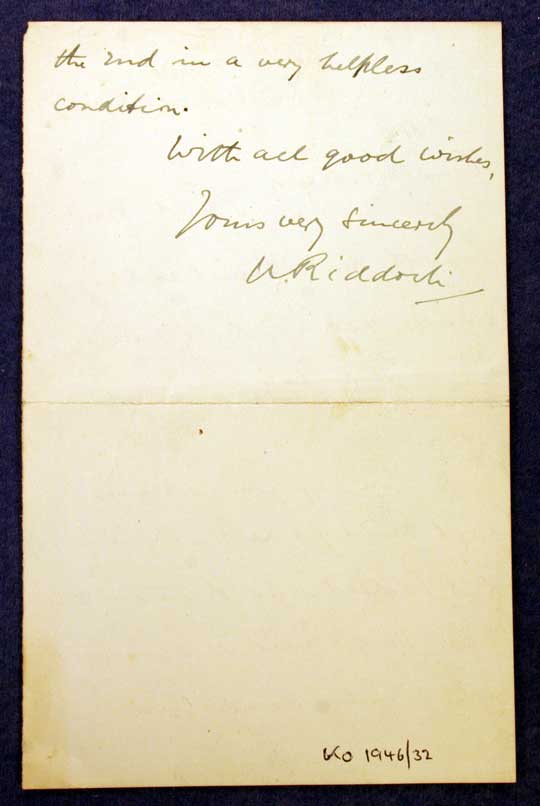 the end in a very helpless
condition.
With all good wishes,
Yours very sincerely
W. Riddoch
KO 1946/32